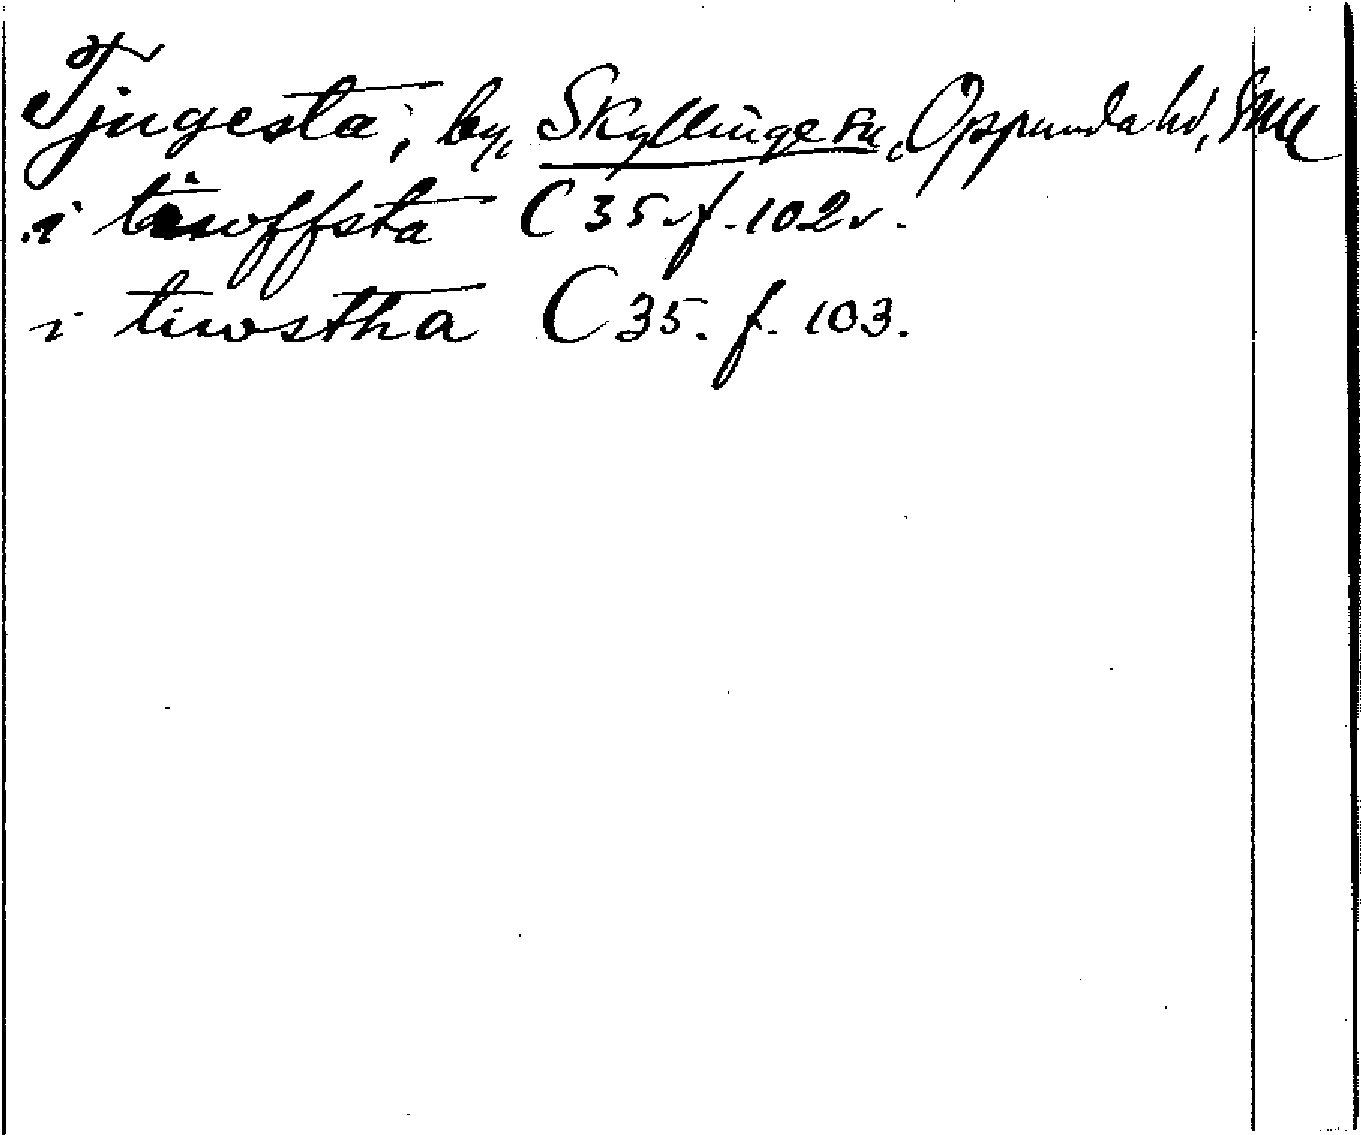 Tjugesta, by, Skyllinge sn, Oppunda hd, Sml
i tiwoffsta C 35. f. 102 v.
i tiwostha C 35. f. 103.